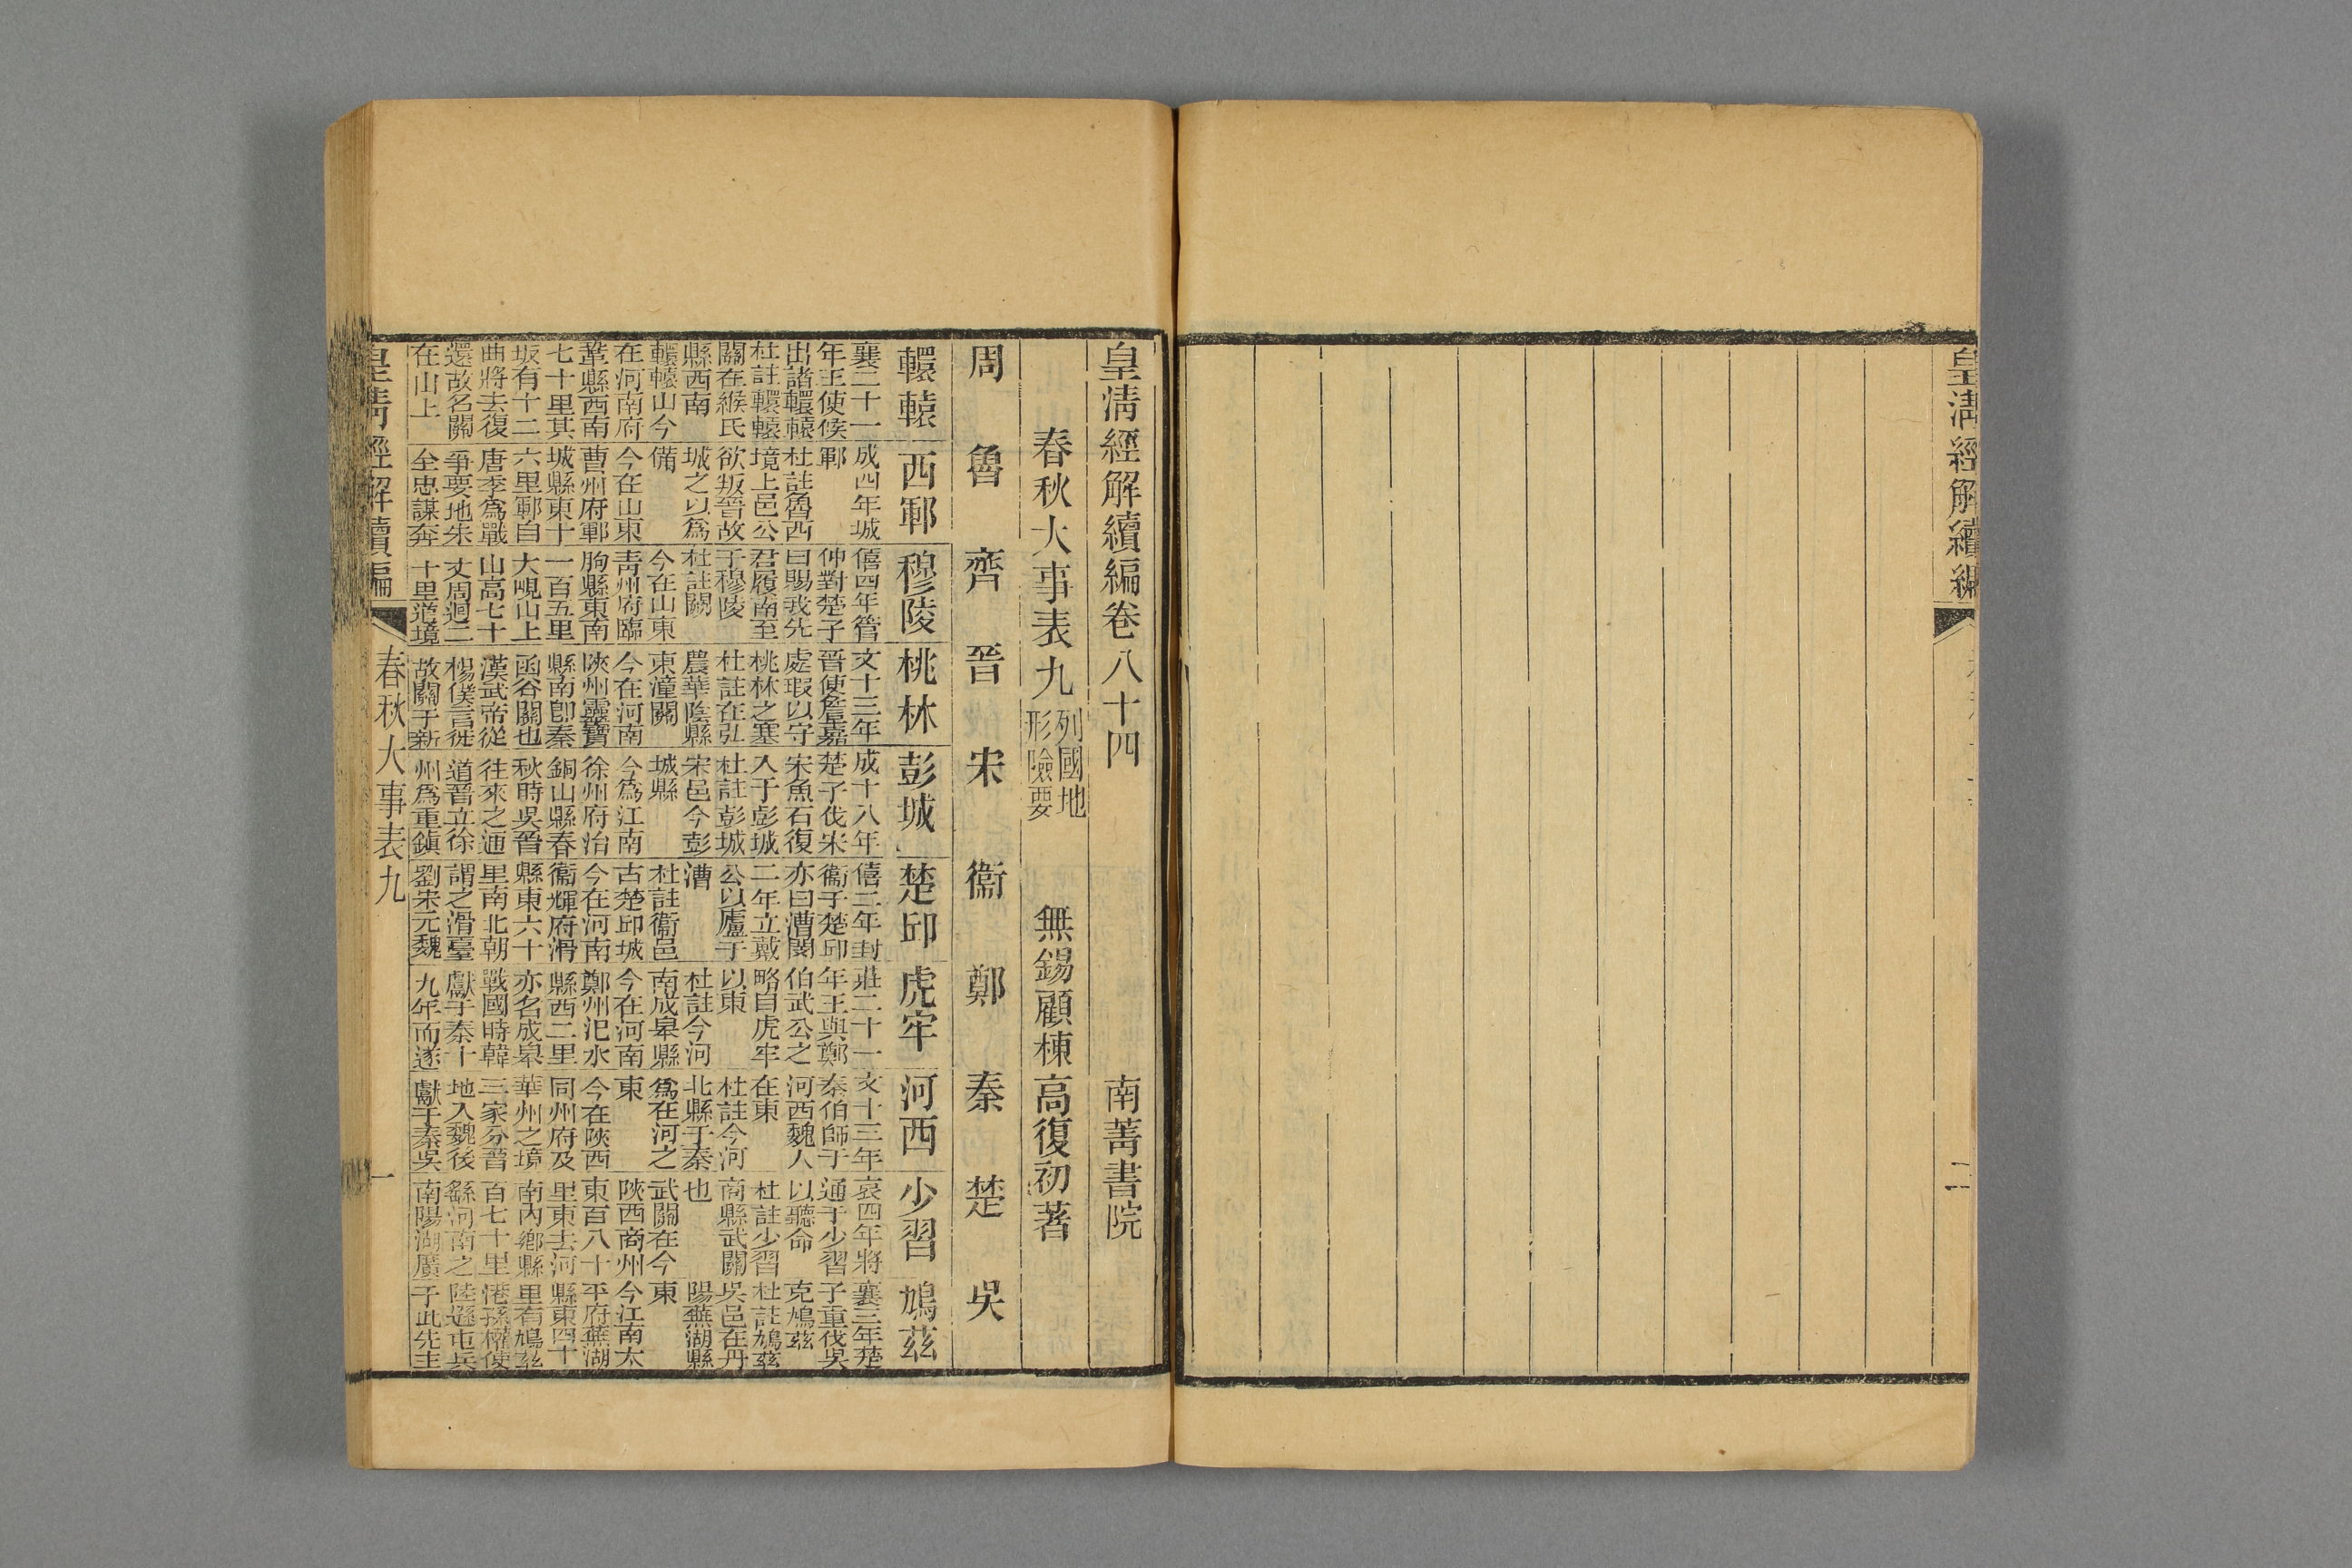 皇清經解續編
二
皇清經解續編卷八十四
南菁書院
春秋大事表九
列國地
形險要
無錫顧棟高復初著
周
魯
齊
晉
宋
衞
鄭
秦
楚
吳
轘轅
襄二十一
年王使候
出諸轘轅
杜註轘轅
關在緱氏
縣西南
轘轅山今
在河南府
鞏縣西南
七十里其
坂有十二
曲將去復
還故名關
在山上
西鄆
成四年城
鄆
杜註魯西
境上邑公
欲叛晉故
城之以為
備
今在山東
曹州府鄆
城縣東十
六里鄆自
唐季為戰
爭要地朱
全忠謀奔
穆陵
僖四年管
仲對楚子
曰賜我先
君履南至
于穆陵
杜註關
今在山東
青州府臨
朐縣東南
一百五里
大峴山上
山高七十
丈周迴二
十里道境
桃林
文十三年
晉使詹嘉
處瑕以守
桃林之塞
杜註在弘
農華陰縣
東潼關
今在河南
陝州靈寶
縣南卽秦
函谷關也
漢武帝從
楊僕言徙
故關于新
彭城
成十八年
楚子伐宋
宋魚石復
入于彭城
杜註彭城
宋邑今彭
城縣
今為江南
徐州府治
銅山縣春
秋時吳晉
往來之通
道晉立徐
州為重鎮
楚邱
僖二年封
衞于楚邱
亦曰漕閔
二年立戴
公以廬于
漕
杜註衞邑
古楚邱城
今在河南
衞輝府滑
縣東六十
里南北朝
謂之滑臺
劉宋元魏
虎牢
莊二十一
年王與鄭
伯武公之
略自虎牢
以東
杜註今河
南成皋縣
今在河南
鄭州汜水
縣西二里
亦名成皋
戰國時韓
獻于秦十
九年而遂
河西
文十三年
秦伯師于
河西魏人
在東
杜註今河
北縣于秦
為在河之
東
今在陝西
同州府及
華州之境
三家分晉
地入魏後
獻于秦吳
少習
哀四年將
通于少習
以聽命
杜註少習
商縣武關
也
武關在今
陝西商州
東百八十
里東去河
南內鄉縣
百七十里
繇河南之
南陽湖廣
鳩茲
襄三年楚
子重伐吳
克鳩茲
杜註鳩茲
吳邑在丹
陽蕪湖縣
東
今江南太
平府蕪湖
縣東四十
里有鳩茲
港孫權使
陸遜屯兵
于此先主
皇清經解續編
春秋大事表九
一